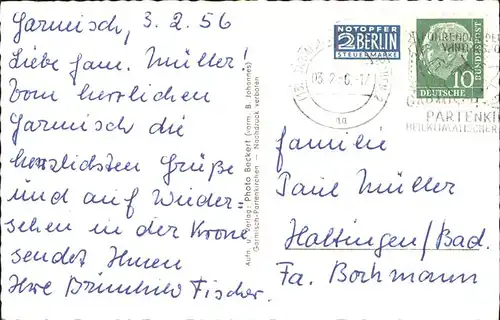 Garmisch, 3.2.56
Liebe Fam. Müller!
Vom herrlichen
Garmisch die
herzlichsten Grüße
und auf Wieder-
sehen in der Krone
sendet Ihnen
Ihre Brünhild Fischer.
Aufn. u. Verlag: Photo Beckert (Inh. B. Johannes)
Garmisch-Partenkirchen — Nachdruck verboten
NOTOPFER
2 BERLIN
STEUERMARKE
DEUTSCHE BUNDESPOST
10
PARTENKI
HEILKLIMATISCHER
familie
Paul Müller
Haltingen/Bad.
Fa. Bochmann